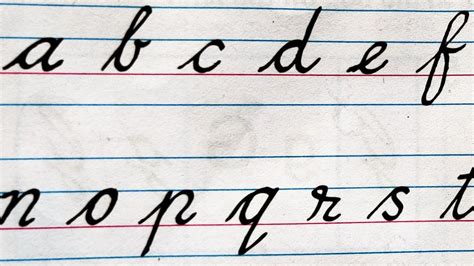 a b c d e f
n o p q r s t